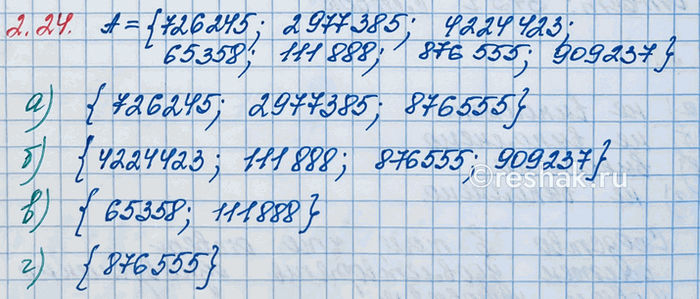 2.24. A = {726245; 2977385; 4224423;
65358; 111888; 876555; 909237}
а) {726245; 2977385; 876555}
б) {4224423; 111888; 876555; 909237}
© reshak.ru
в) {65358; 111888}
г) {876555}